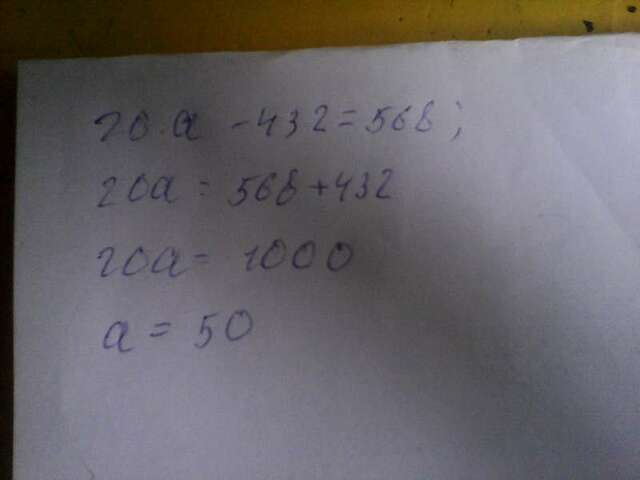 20·a - 432 = 568;
20a = 568 + 432
20a = 1000
a = 50